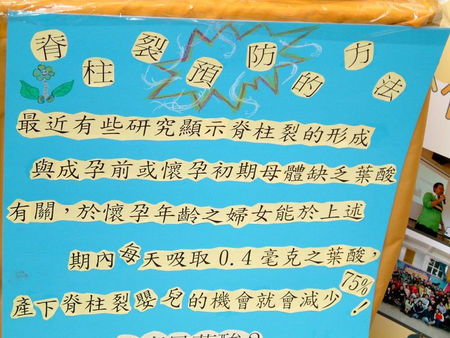 脊柱裂預防的方法
最近有些研究顯示脊柱裂的形成
與成孕前或懷孕初期母體缺乏葉酸
有關，於懷孕年齡之婦女能於上述
期內每天吸取0.4毫克之葉酸，
產下脊柱裂嬰兒的機會就會減少75%!